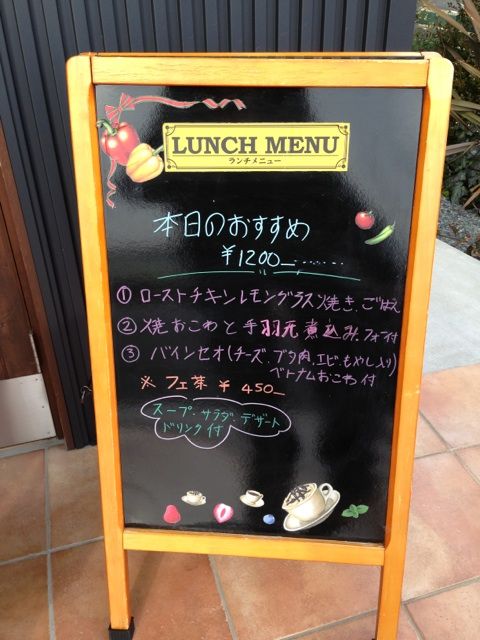 LUNCH MENU
ランチメニュー
本日のおすすめ
¥1200
① ローストチキンレモングラス焼き、ごはん
② 焼おこわと手羽元煮込み、フォー付
③ バインセオ(チーズ、ブタ肉、エビ、もやし入り)
ベトナムおこわ付
※ フエ茶 ¥450
スープ・サラダ・デザート
ドリンク付